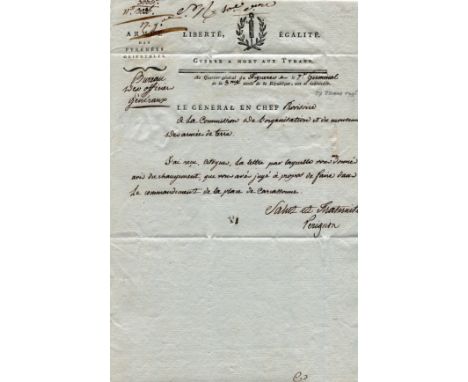 ARMÉE
DES
PYRÉNÉES
ORIENTALES.
LIBERTÉ, ÉGALITÉ.
GUERRE A MORT AUX TYRANS.
Bureau
des officiers
généraux
Au Quartier-général de Figueras ce 7e Germinal
de la 3me année de la République, une et indivisible.
LE GÉNÉRAL EN CHEF Provisoire
a la Commission de l'organisation et du mouvement
des armées de terre.
J'ai reçu, citoyens, la lettre par laquelle vous donnés
avis du changement, que vous avés jugé à propos de faire dans
le commandement de la place de Carcassonne.
Salut et Fraternité
Perignon